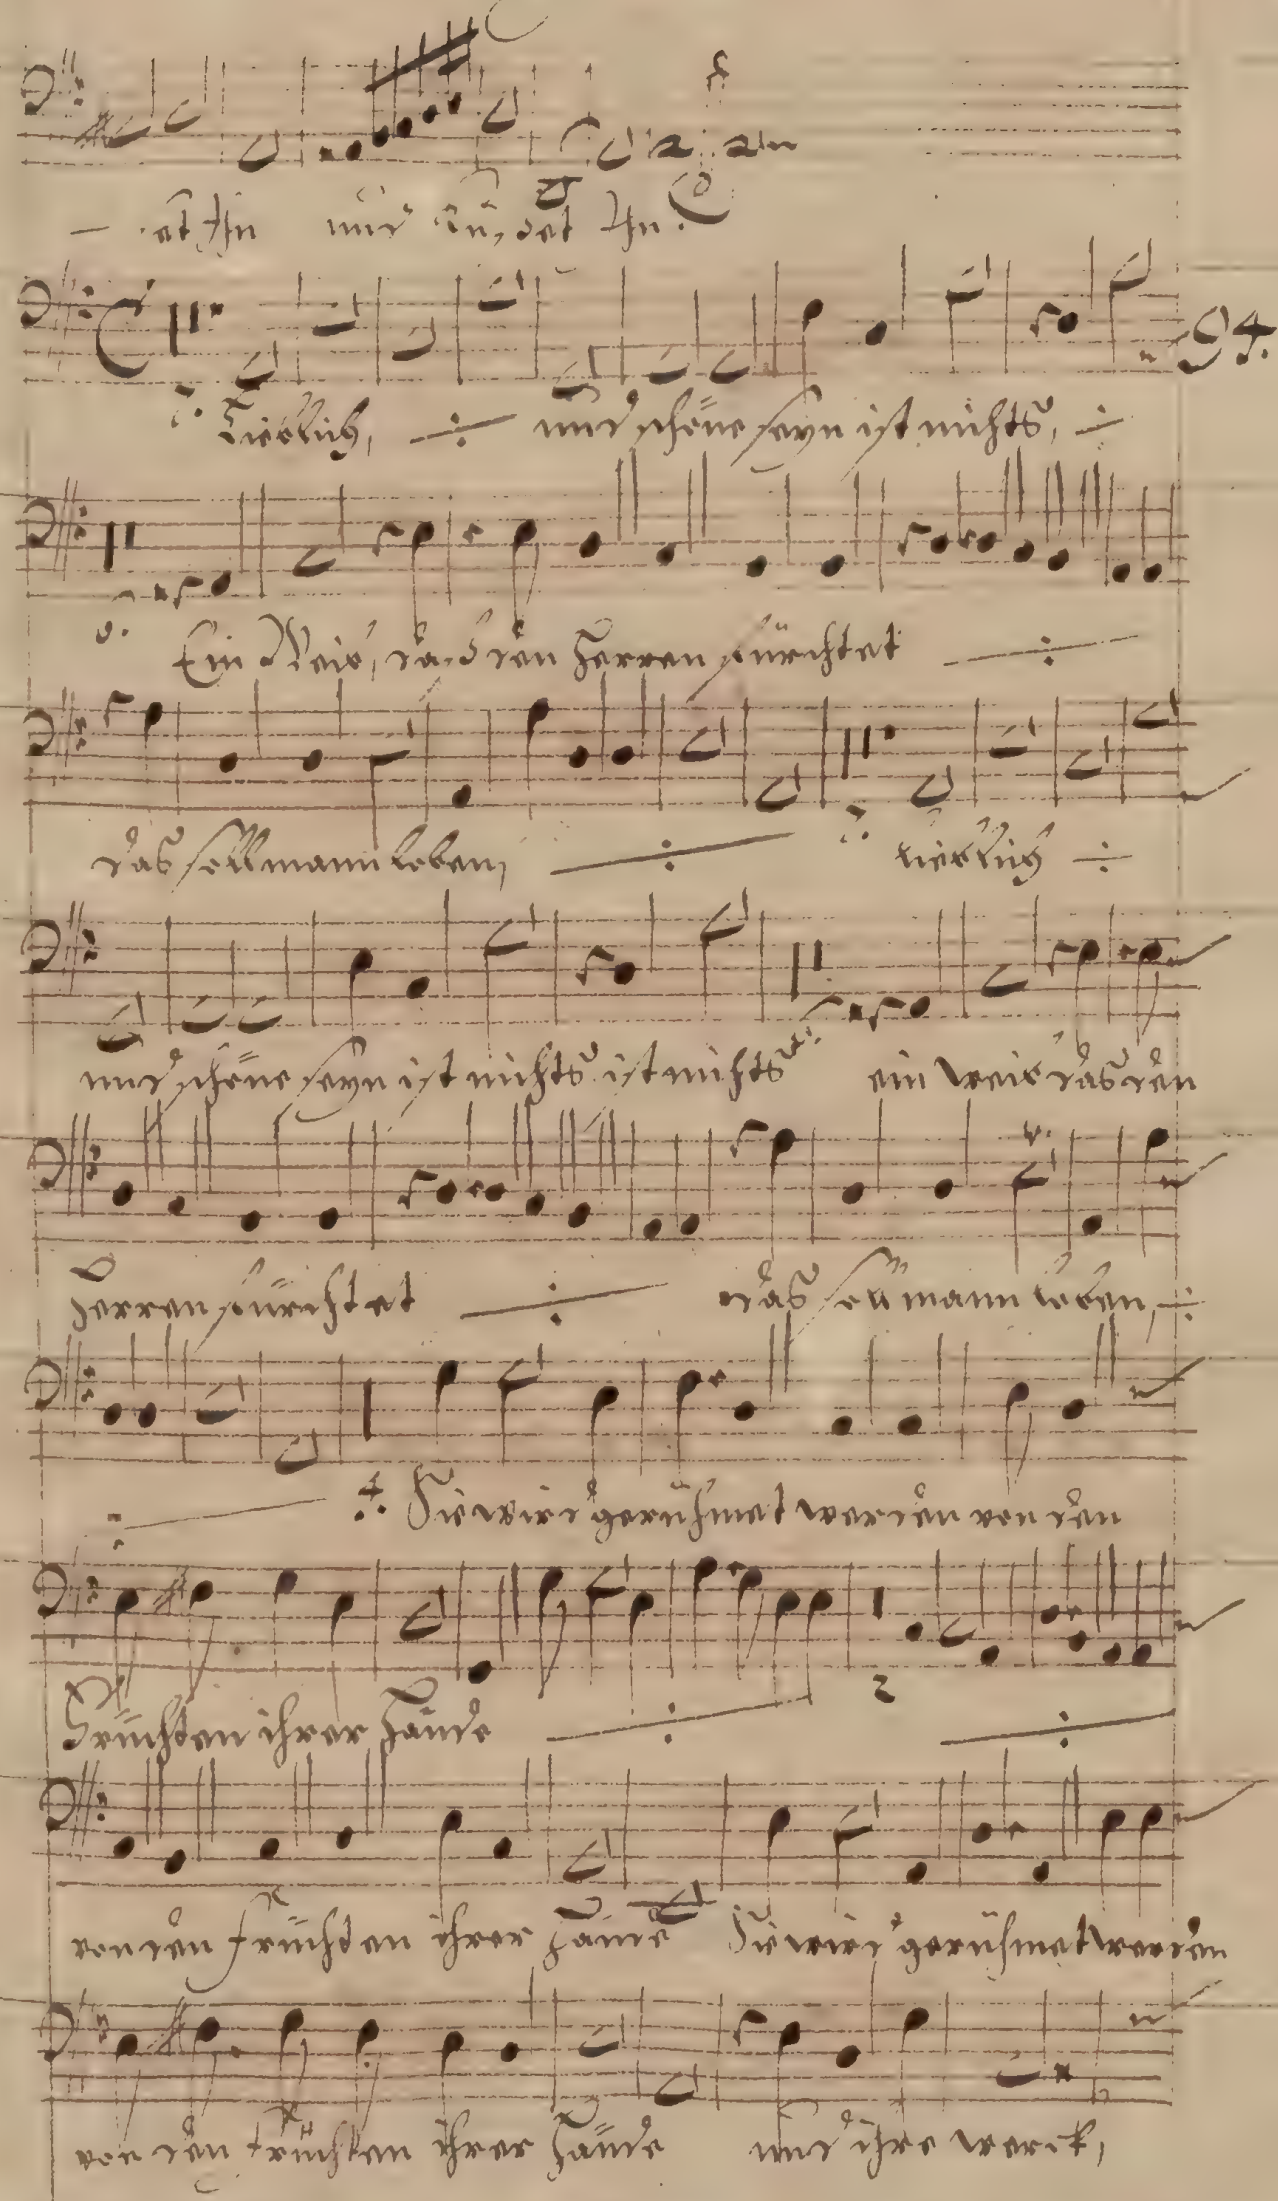 — et Ihn und kündet Ihn.
94.
Lieblich, ÷ und schöne seyn ist nichts, ÷
8. Ein Weib, daß den Herren fürchtet ÷
das soll mann loben, ÷ lieblich ÷
und schöne seyn ist nichts ist nichts ein weib das den
Herren fürchtet ÷ das soll mann loben, ÷
÷ 4. Sie wird gerühmet werden von den
Früchten ihrer Hände ÷ 2 ÷
von den früchten ihrer Hände Sie wird gerühmet werden
von den früchten ihrer Hände und ihre werck,